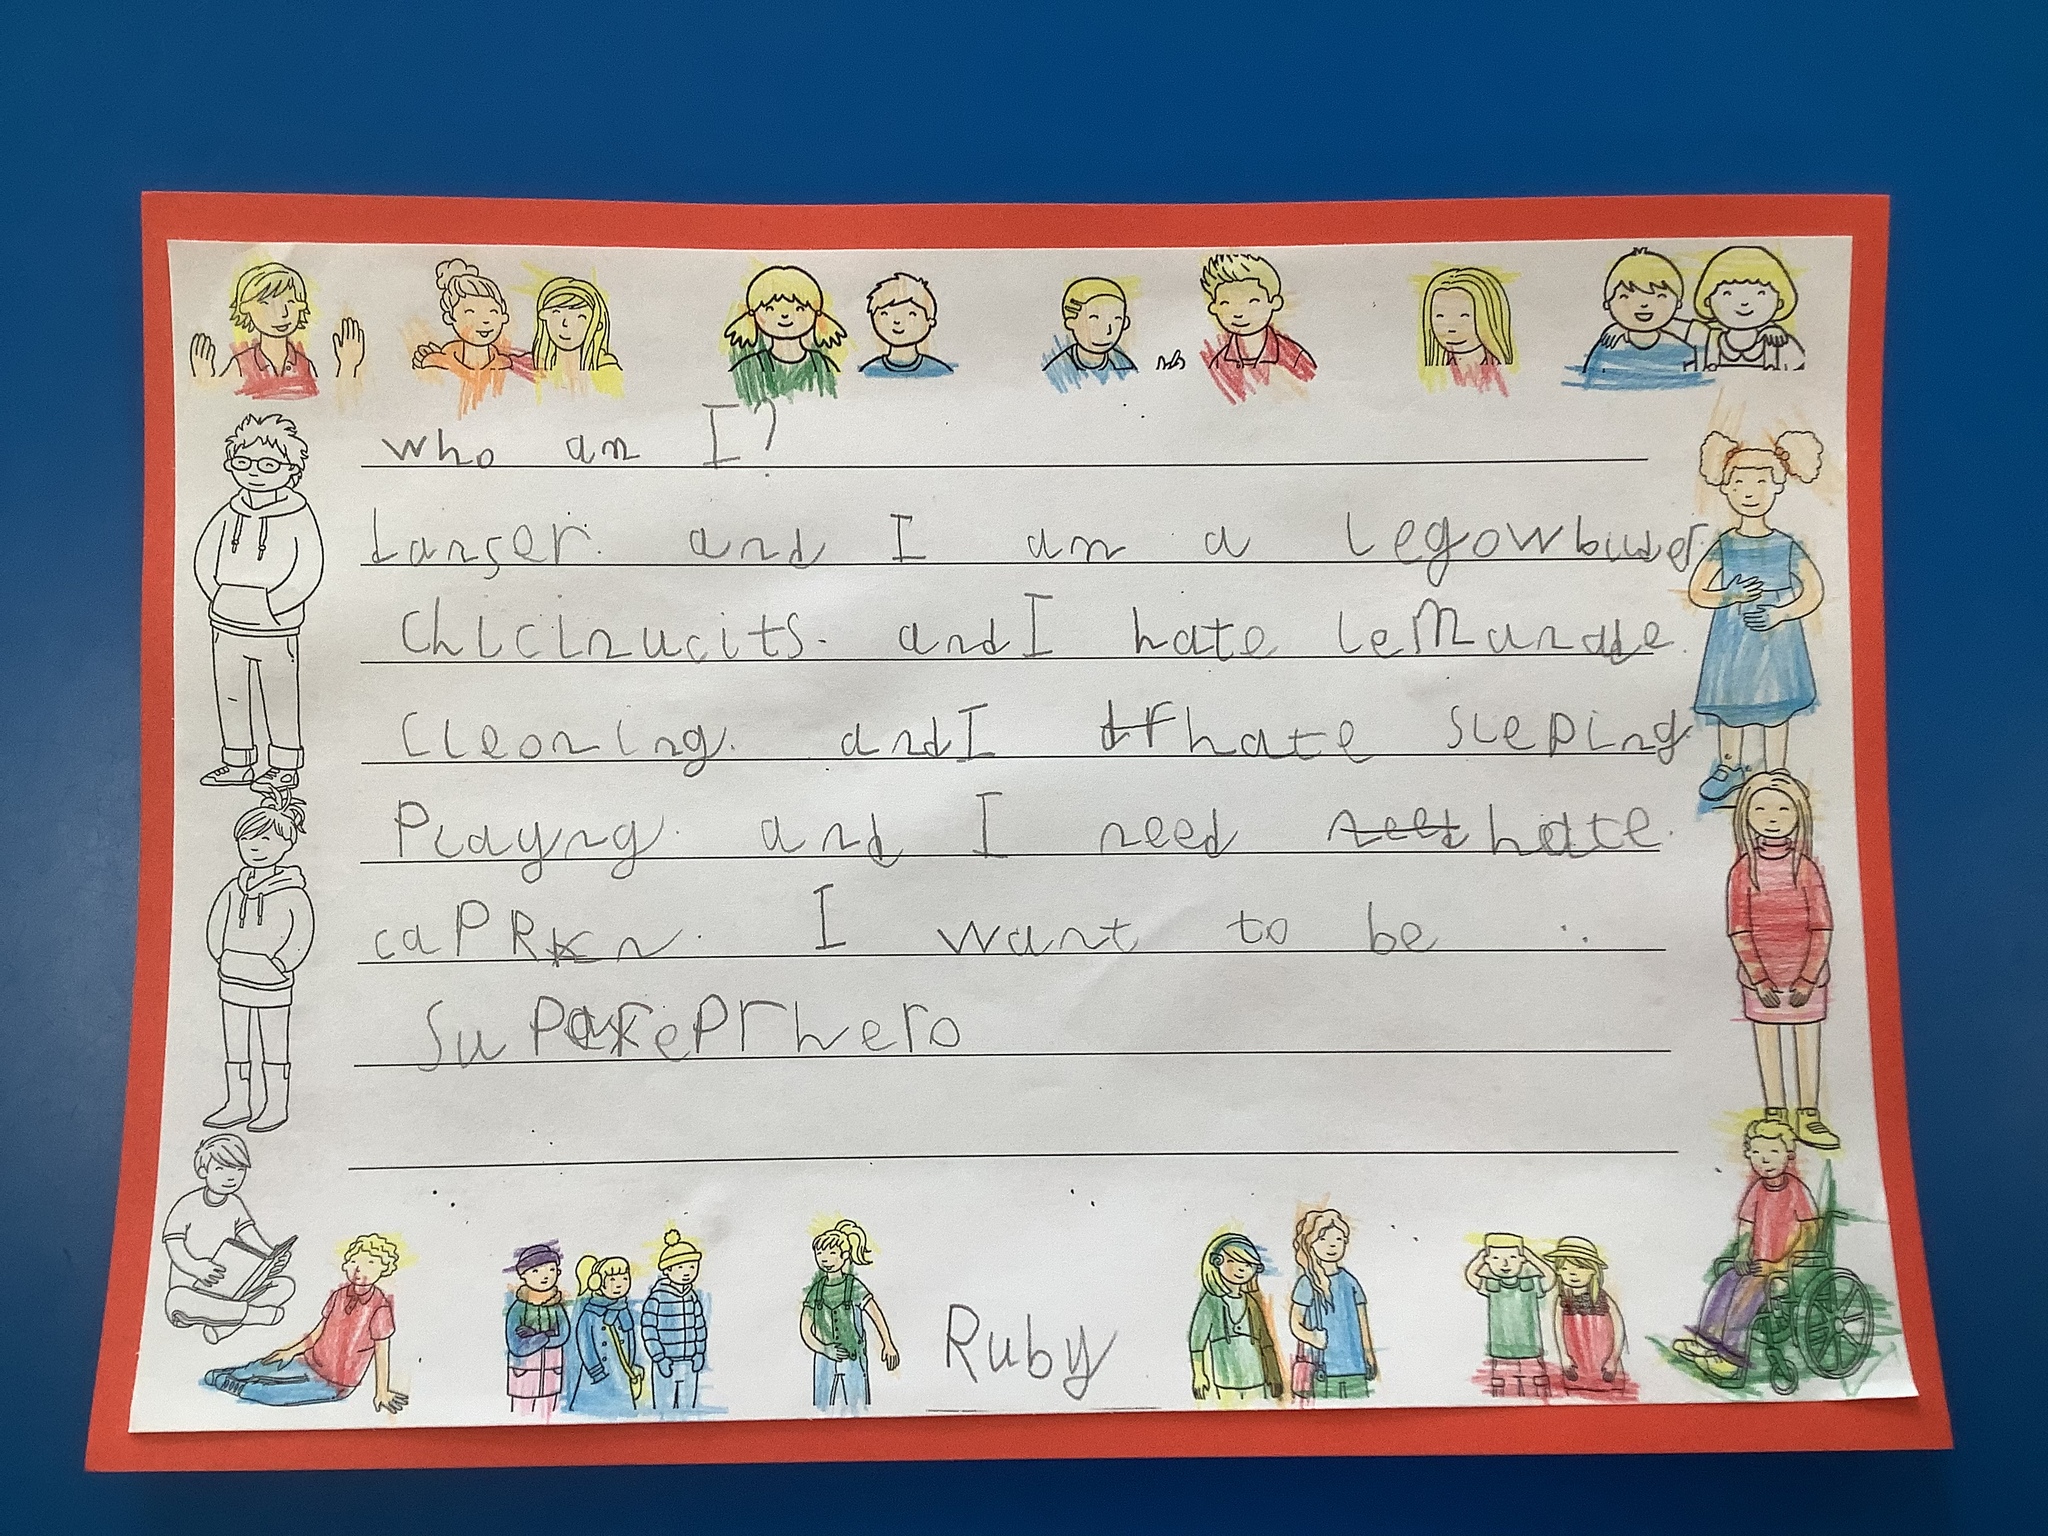 who am I?
danser. and I am a legowbilder.
Chicinucits. and I hate lemanade.
Cleoning. and I hate sleping
Playng. and I need hate.
caPRKn. I want to be ..
Superhero
Ruby